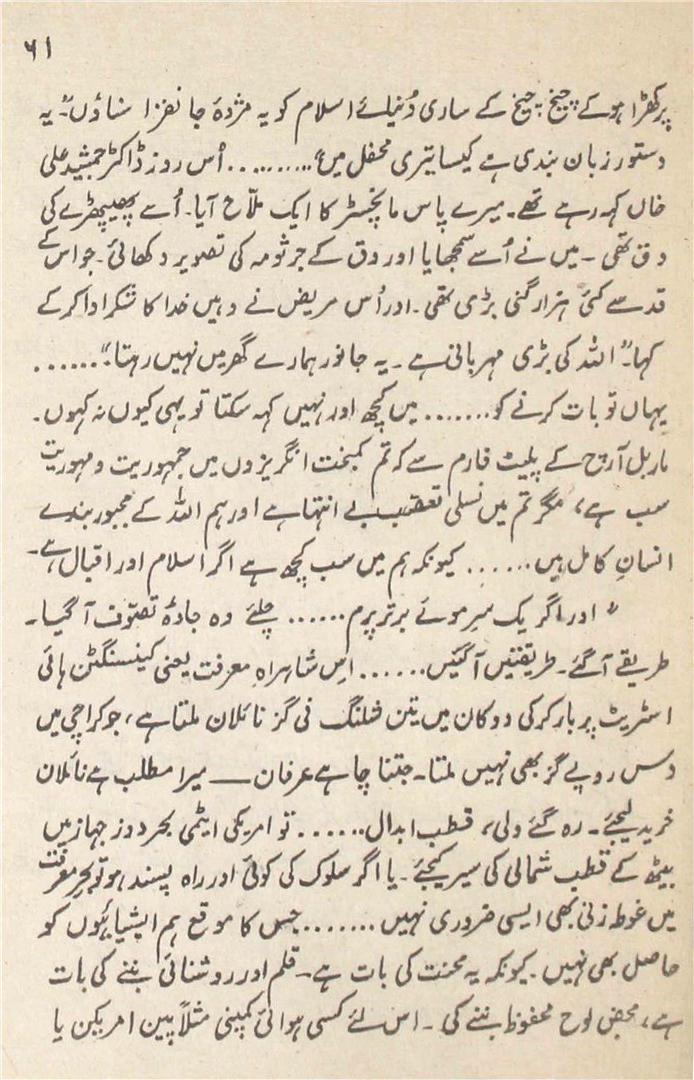 ۶۱
پر کھڑا ہو کے چیخ چیخ کے ساری دُنیائے اسلام کو یہ مژدۂ جانفزا سناؤں"۔ یہ
دستور زبان بندی ہے کیسا تیری محفل میں"......... اُس روز ڈاکٹر جمشید علی
خاں کہہ رہے تھے۔ میرے پاس مانچسٹر کا ایک ملّاح آیا۔ اُسے پھیپھڑے کی
دق تھی۔ میں نے اُسے سمجھایا اور دق کے جرثومہ کی تصویر دکھائی۔ جو اس کے
قد سے کئی ہزار گنی بڑی تھی۔ اور اُس مریض نے وہیں خدا کا شکر ادا کر کے
کہا۔" اللہ کی بڑی مہربانی ہے۔ یہ جانور ہمارے گھر میں نہیں رہتا۔"......
یہاں تو بات کرنے کو....... میں کچھ اور نہیں کہہ سکتا تو یہی کیوں نہ کہوں۔
ماربل آرچ کے پلیٹ فارم سے کہ تم کمبخت انگریزوں میں جمہوریت ومہوریت
سب ہے، مگر تم میں نسلی تعصّب بے انتہا ہے اور ہم اللہ کے مجبور بندے
انسانِ کامل ہیں...... کیونکہ ہم میں سب کچھ ہے اگر اسلام اور اقبال ہے۔
" اور اگر یک سرِ موئے برتر پرم...... چلئے وہ جادۂ تصوّف آ گیا۔
طریقے آ گئے۔ طریقتیں آ گئیں...... اِس شاہراہِ معرفت یعنی کینسنگٹن ہائی
اسٹریٹ پر بارکر کی دوکان میں تین شلنگ فی گز نائلان ملتا ہے، جو کراچی میں
دس روپے گز بھی نہیں ملتا۔ جتنا چاہے عرفان — میرا مطلب ہے نائلان
خرید لیجئے۔ رہ گئے ولی، قطب ابدال...... تو امریکی ایٹمی بحر دوز جہاز میں
بیٹھ کے قطب شمالی کی سیر کیجئے۔ یا اگر سلوک کی کوئی اور راہ پسند ہو تو بحرِ معرفت
میں غوطہ زنی بھی ایسی ضروری نہیں....... جس کا موقع ہم ایشیائیوں کو
حاصل بھی نہیں۔ کیونکہ یہ محنت کی بات ہے۔ قلم اور روشنائی بننے کی بات
ہے، محض لوح محفوظ بننے کی۔ اس لئے کسی ہوائی کمپنی مثلاً پین امریکن یا